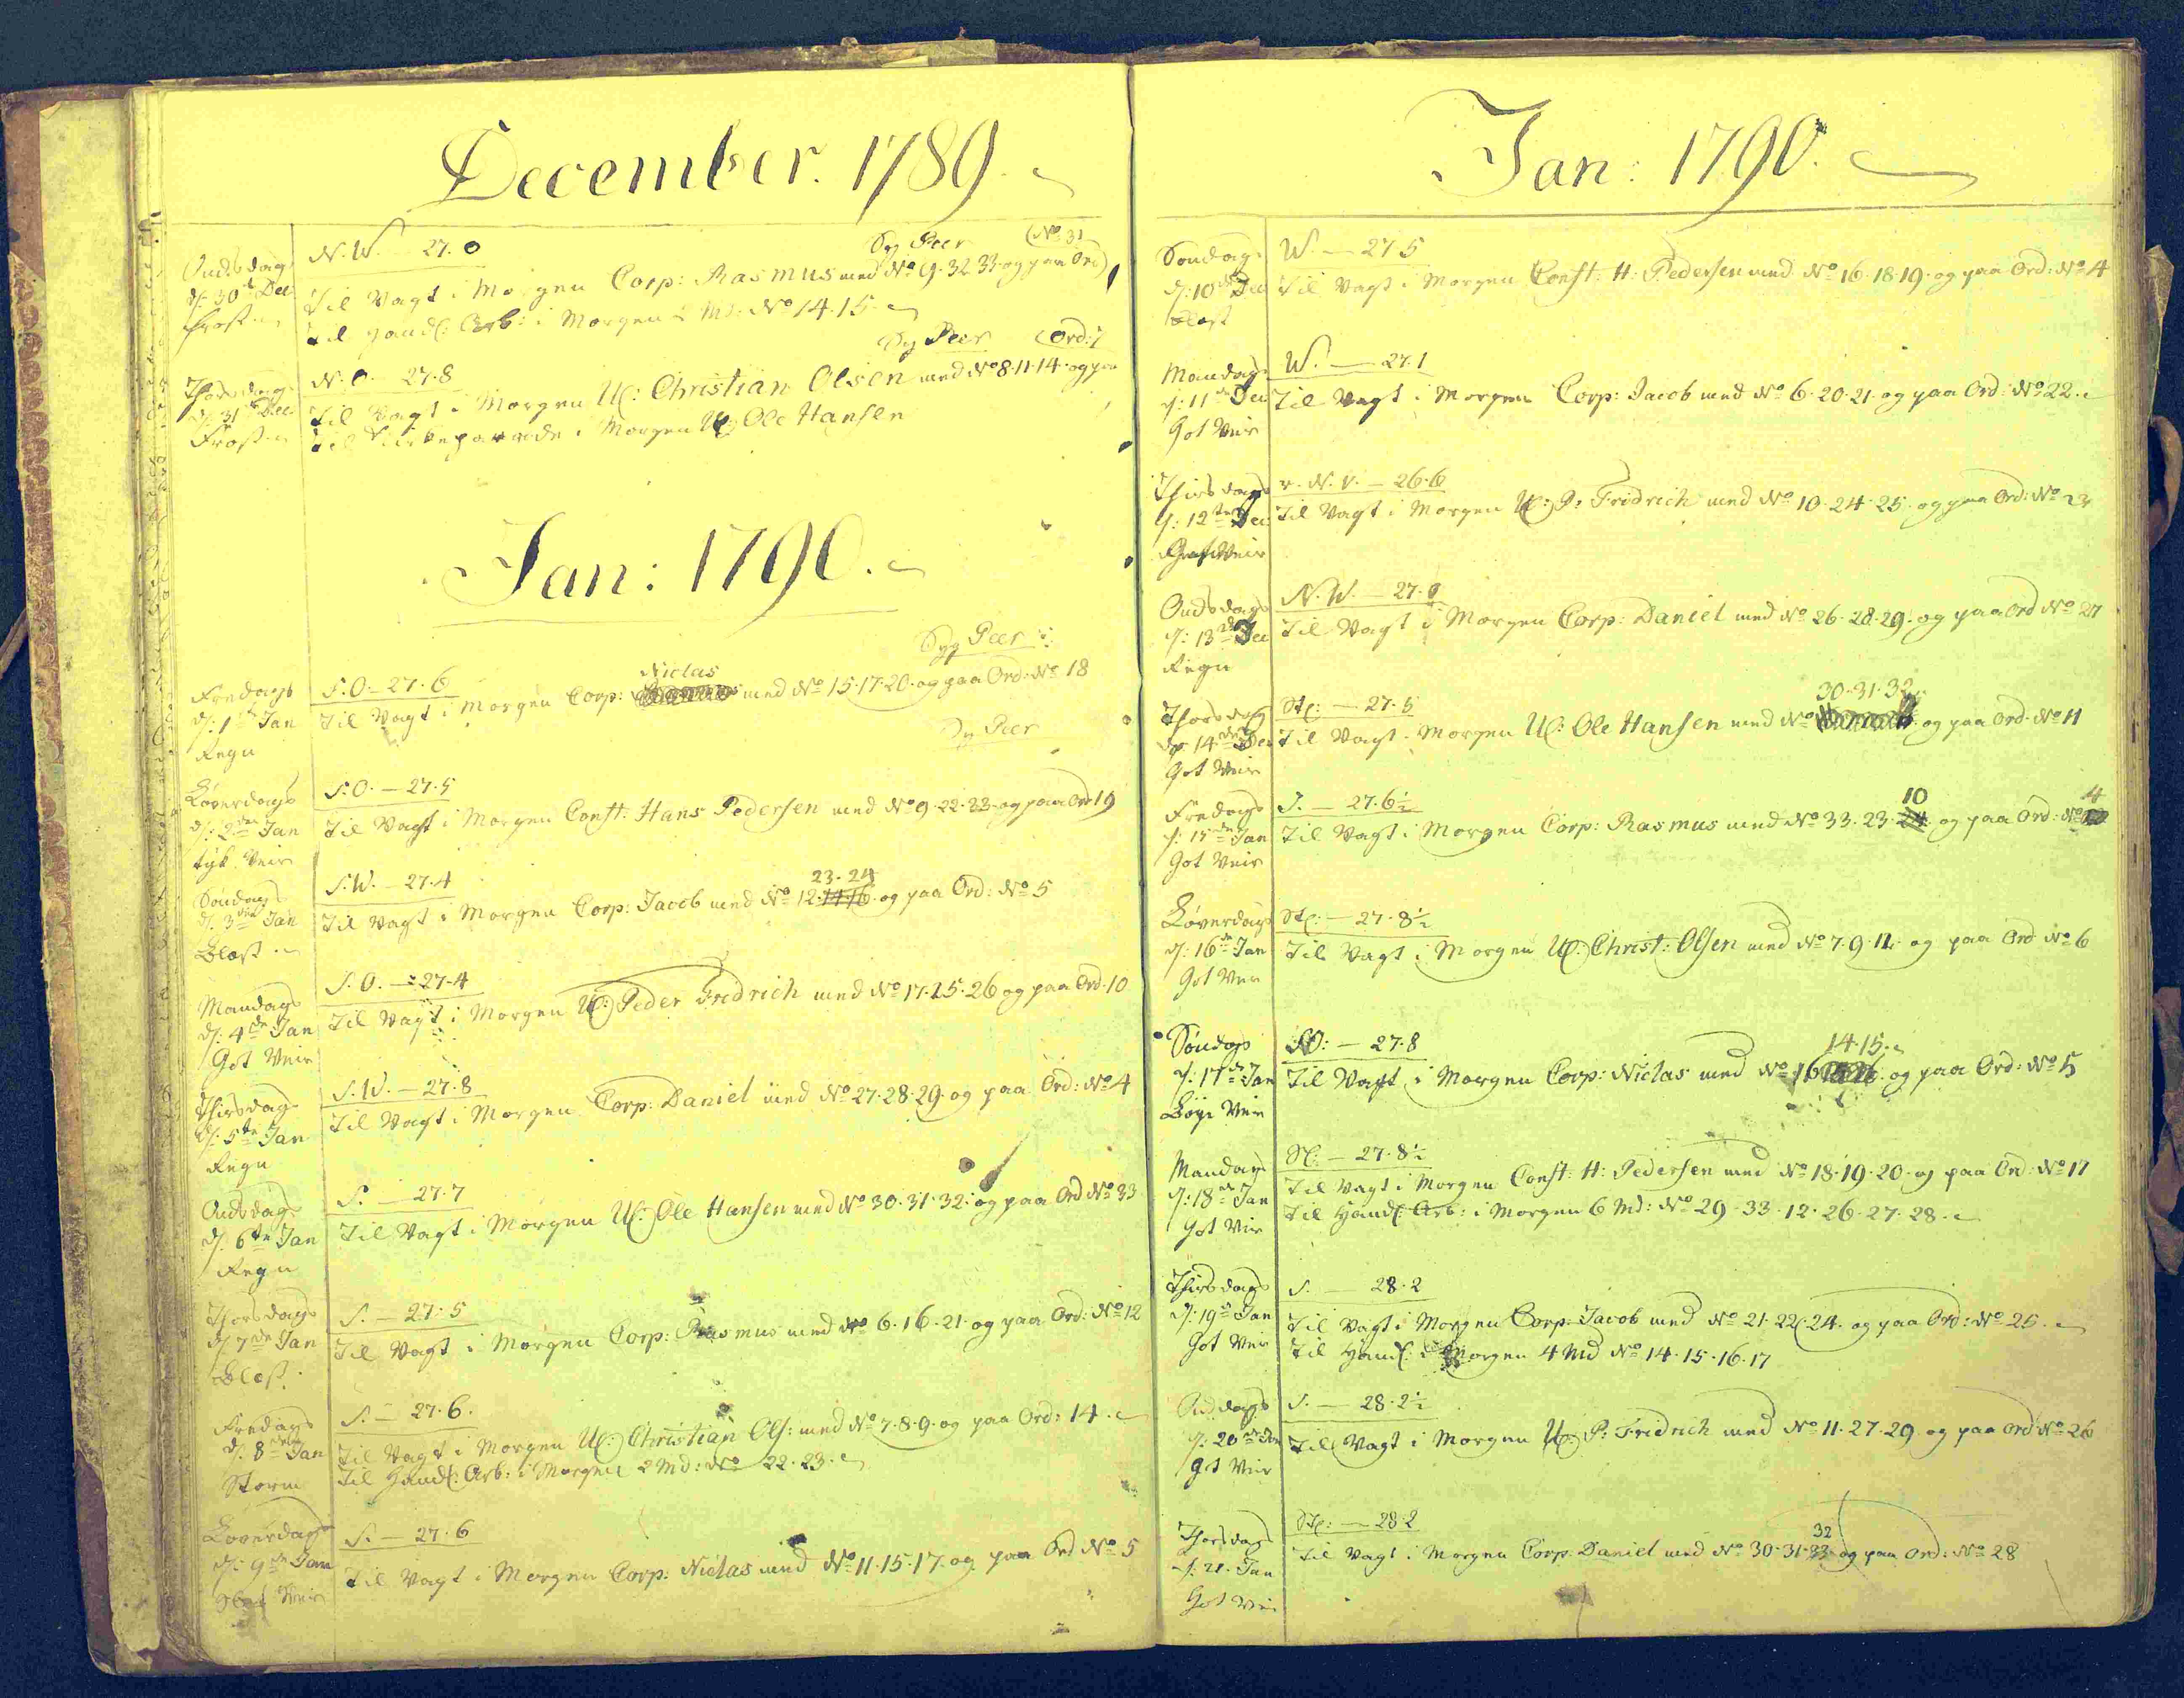 December. 1789.
Onsdag
d: 30te Dec
Frost
N.W. 27.0
Syg Peer (No 31
Til Vagt i Morgen Corp: Rasmus med No 9.32.33. og paa Ord)
Til Handl: Arb: i Morgen 2 Md: No 14.15.
Syg Peer (Ord: 7
Thorsdag
d: 31te Dec
Frost
N.O. 27.8
Til Vagt i Morgen Uc: Christian Olsen med No 8.11.14. og paa
Til Kirkeparade i Morgen Uc: Ole Hansen
Jan: 1790.
Syg Peer
Fredags
d: 1te Jan
Regn
S.O. 27.6
Niclas
Til Vagt i Morgen Corp: med No 15.17.20. og paa Ord: No 18
Syg Peer
Løverdags
d: 2den Jan
tyk Veir
S.O. — 27.5
Til Vagt i Morgen Const: Hans Pedersen med No 9.22.33. og paa Ord 19
Søndags
d: 3die Jan
Blæst
S.W. — 27.4
23.24
Til Vagt i Morgen Corp: Jacob med No 12.14.16. og paa Ord: No 5
Mandags
d: 4de Jan
Got Veir
S.O. — 27.4
Til Vagt i Morgen Uc: Peder Fredrich med No 17.25.26 og paa Ord. 10
Thirsdag
d: 5te Jan
Regn
S.W. — 27.8
Til Vagt i Morgen Corp: Daniel med No 27.28.29. og paa Ord: No 4
Onsdags
d: 6te Jan
Regn
S. — 27.7
Til Vagt i Morgen Uc: Ole Hansen med No 30.31.32. og paa Ord No 33
Thorsdags
d: 7de Jan
Blæst
S. — 27.5
Til Vagt i Morgen Corp: Rasmus med No 6.16.21. og paa Ord: No 12
Fredags
d: 8de Jan
Storm
S. — 27.6.
Til Vagt i Morgen Uc: Christian Ols: med No 7.8.9. og paa Ord: 14.
Til Handl: Arb: i Morgen 2 Md: No 22.23.
Løverdags
d: 9de Jan
Veir
S. — 27.6
Til Vagt i Morgen Corp: Niclas med No 11.15.17. og paa Ord No 5
Jan: 1790.
Søndag
d: 10de Dec
Blæst
W. — 27.5
Til Vagt i Morgen Const: H: Pedersen med No 16.18.19. og paa Ord: No 4
Mandags
d: 11te Dec
Got Veir
W. — 27.1
Til Vagt i Morgen Corp: Jacob med No 6.20.21. og paa Ord: No 22.
Thirsdags
d: 12te Dec
Veir
v. N. v. — 26.6
Til Vagt i Morgen Uc: P: Fridrich med No 10.24.25. og paa Ord: No 23
Onsdags
d: 13de Dec
Regn
N.W. — 27.0
Til Vagt i Morgen Corp: Daniel med No 26.28.29. og paa Ord No 27
Thorsdag
d: 14de Dec
Got Veir
Stl: — 27.5
30.31.32.
Til Vagt i Morgen Uc: Ole Hansen med No og paa Ord. No 11
Fredags
d: 15de Jan
Got Veir
S. — 27.6½
10 4
Til Vagt i Morgen Corp: Rasmus med No 33.23.24 og paa Ord: No
Løverdags
d: 16de Jan
Got Veir
Stl: — 27.8½
Til Vagt i Morgen Uc: Christ: Olsen med No 7.9.12. og paa Ord No 6
Søndags
d: 17de Jan
Veir
SO: — 27.8
14.15.
Til Vagt i Morgen Corp: Niclas med No 16 og paa Ord: No 5
Mandag
d: 18de Jan
Got Veir
Stl: — 27.8½
Til Vagt i Morgen Const: H: Pedersen med No 18.19.20. og paa Ord: No 17
Til Handl: Arb: i Morgen 6 Md: No 29.33.12.26.27.28.
Thirsdags
d: 19de Jan
Got Veir
S. — 28.2
Til Vagt i Morgen Corp: Jacob med No 21.22.24. og paa Ord: No 25.
Til Handl: i Morgen 4 Md No 14.15.16.17
Onsdags
d: 20de Jan
got Veir
S. — 28.2½
Til Vagt i Morgen Uc: P: Fridrich med No 11.27.29. og paa Ord No 26
Thorsdags
d: 21. Jan
Got Veir
Stl: — 28.2
32
Til Vagt i Morgen Corp: Daniel med No 30.31.33 og paa Ord: No 28